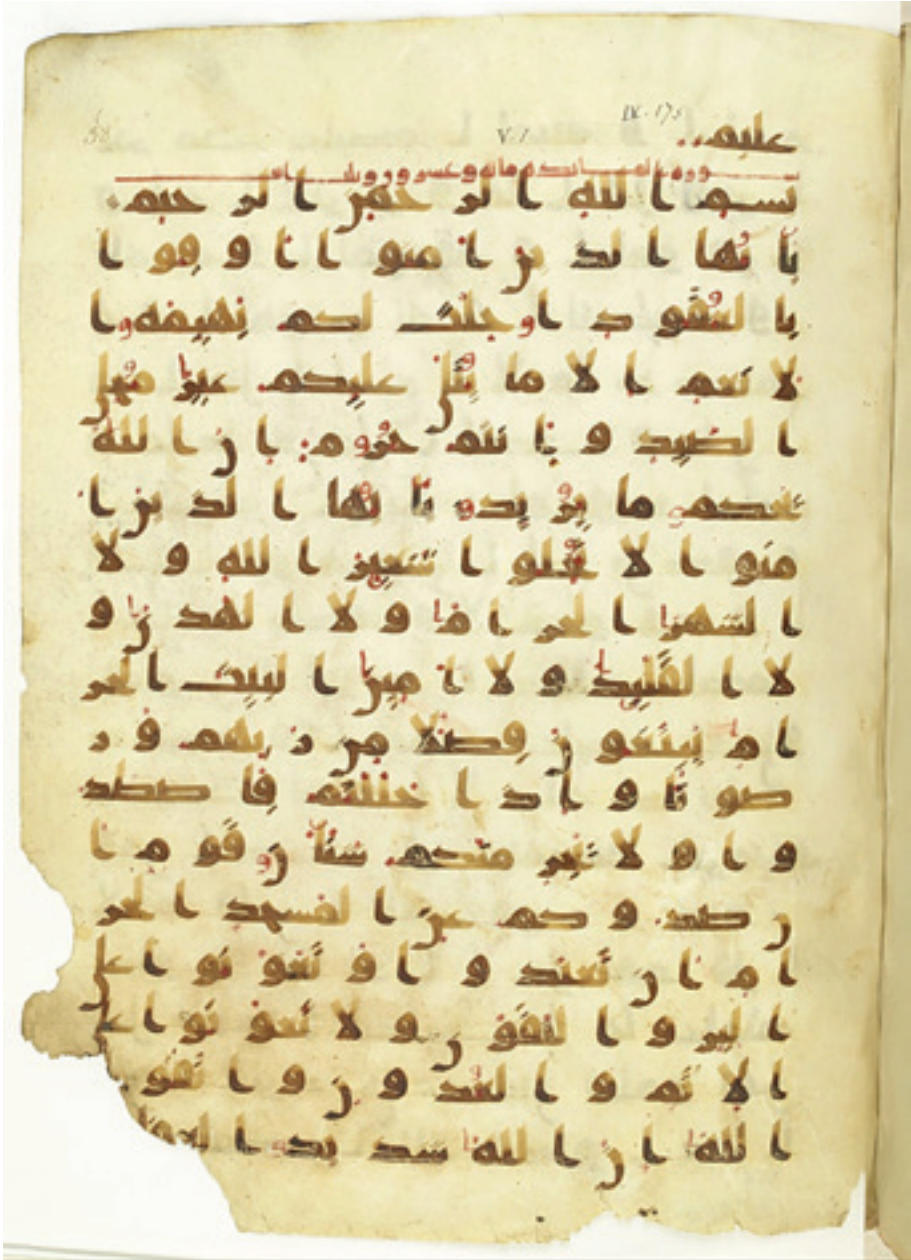 IV. 175
V. 1
عليم
سورة المائدة مائة وعشرون وثلث ايات
بسم الله الرحمن الرحيم
يايها الذين امنوا اوفوا
بالعقود احلت لكم بهيمة ا
لانعم الا ما يتلى عليكم غير محلي
الصيد وانتم حرم ان الله
يحكم ما يريد يايها الذين ا
منوا لا تحلوا شعير الله ولا
الشهر الحرام ولا الهدي و
لا القليد ولا امين البيت الحر
ام يبتغون فضلا من ربهم ور
ضونا واذا حللتم فاصطد
وا ولا يجرمنكم شنان قوم ا
ن صدوكم عن المسجد الحر
ام ان تعتدوا وتعونوا على
البر والتقوى ولا تعونوا على
الاثم والعدون واتقوا
الله ان الله شديد العقا